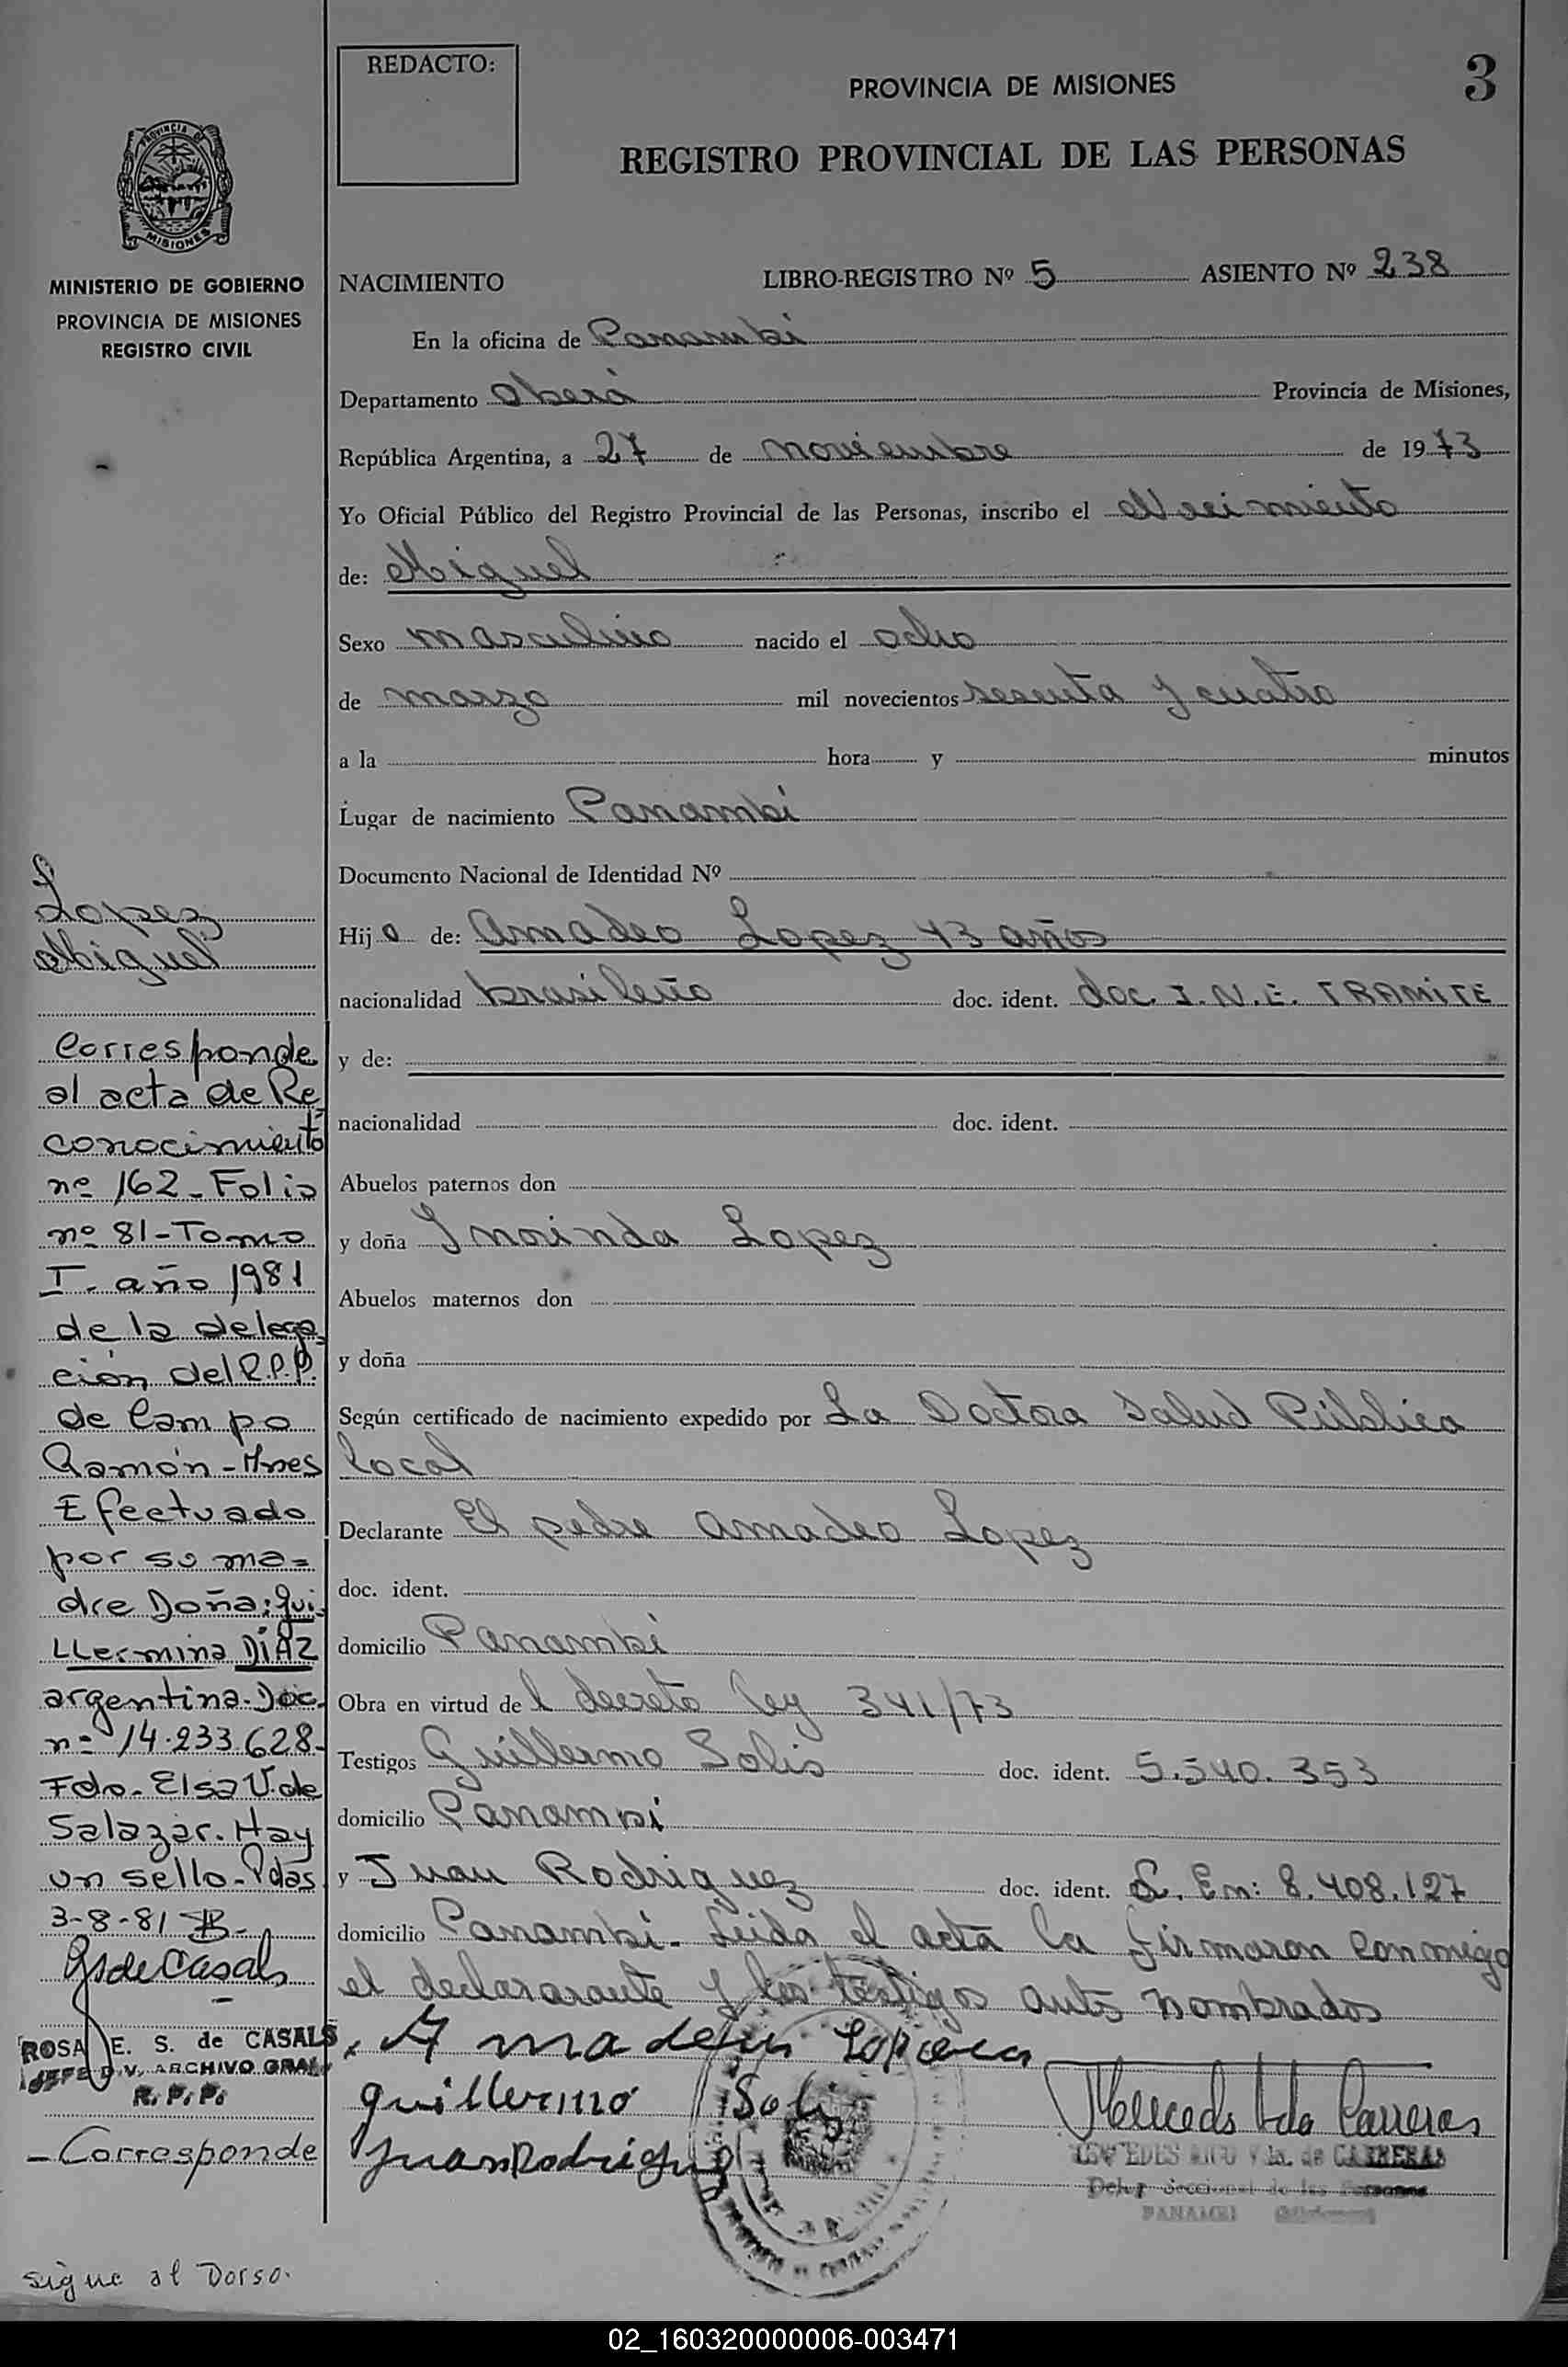 REDACTO:
PROVINCIA DE MISIONES
3
REGISTRO PROVINCIAL DE LAS PERSONAS
PROVINCIA DE
MISIONES
MINISTERIO DE GOBIERNO
PROVINCIA DE MISIONES
REGISTRO CIVIL
NACIMIENTO LIBRO-REGISTRO Nº 5 ASIENTO Nº 238
En la oficina de Panambi
Departamento Oberá Provincia de Misiones,
República Argentina, a 27 de noviembre de 1973
Yo Oficial Público del Registro Provincial de las Personas, inscribo el Nacimiento
de: Miguel
Sexo masculino nacido el ocho
de marzo mil novecientos sesenta y cuatro
a la hora y minutos
Lugar de nacimiento Panambi
Documento Nacional de Identidad Nº
Hijo de: Amadeo Lopez 43 años
nacionalidad brasileño doc. ident. doc. I.N.E. TRAMITE
y de:
nacionalidad doc. ident.
Abuelos paternos don
y doña Lopez
Abuelos maternos don
y doña
Según certificado de nacimiento expedido por La Doctora Salud Pública
local
Declarante El padre Amadeo Lopez
doc. ident.
domicilio Panambi
Obra en virtud del decreto ley 341/73
Testigos Guillermo Solis doc. ident. 5.540.353
domicilio Panambi
y Juan Rodriguez doc. ident. L. En: 8.408.127
domicilio Panambi. Leida el acta la firmaron conmigo
el declararante y los testigos antes nombrados
Guillermo Solis
Juan Rodriguez
de CARRERAS
PANAMBI
Lopez
Miguel
Corresponde
al acta de Re
conocimiento
nº 162-Folio
nº 81-Tomo
I-año 1981
de la delega
ción del R.P.P.
de Campo
Ramón-Mnes
Efectuado
por su ma=
dre Doña: Gui
LLermina DÍAZ
argentina-Doc.
nº 14.233.628-
Fdo. Elsa V. de
Salazar. Hay
un sello-Pdas
3-8-81
ROSA E. S. de CASALS
JEFE DIV. ARCHIVO GRAL
R.P.P.
-Corresponde
sigue al Dorso.
02_160320000006-003471